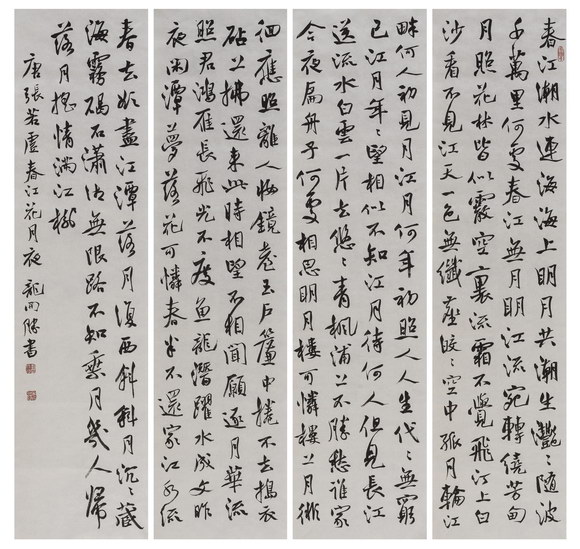 春江潮水連海海上明月共潮生灩〻隨波
千萬里何處春江無月明江流宛轉繞芳甸
月照花林皆似霰空裏流霜不覺飛汀上白
沙看不見江天一色無纖塵皎〻空中孤月輪江
畔何人初見月江月何年初照人人生代〻無窮
已江月年〻望相似不知江月待何人但見長江
送流水白雲一片去悠〻青楓浦上不勝愁誰家
今夜扁舟子何處相思明月樓可憐樓上月徘
徊應照離人妝鏡臺玉戶簾中捲不去搗衣
砧上拂還來此時相望不相聞願逐月華流
照君鴻雁長飛光不度魚龍潛躍水成文昨
夜閑潭夢落花可憐春半不還家江水流
春去欲盡江潭落月復西斜斜月沉〻藏
海霧碣石瀟湘無限路不知乘月幾人歸
落月搖情滿江樹
唐張若虛春江花月夜 龍開勝書